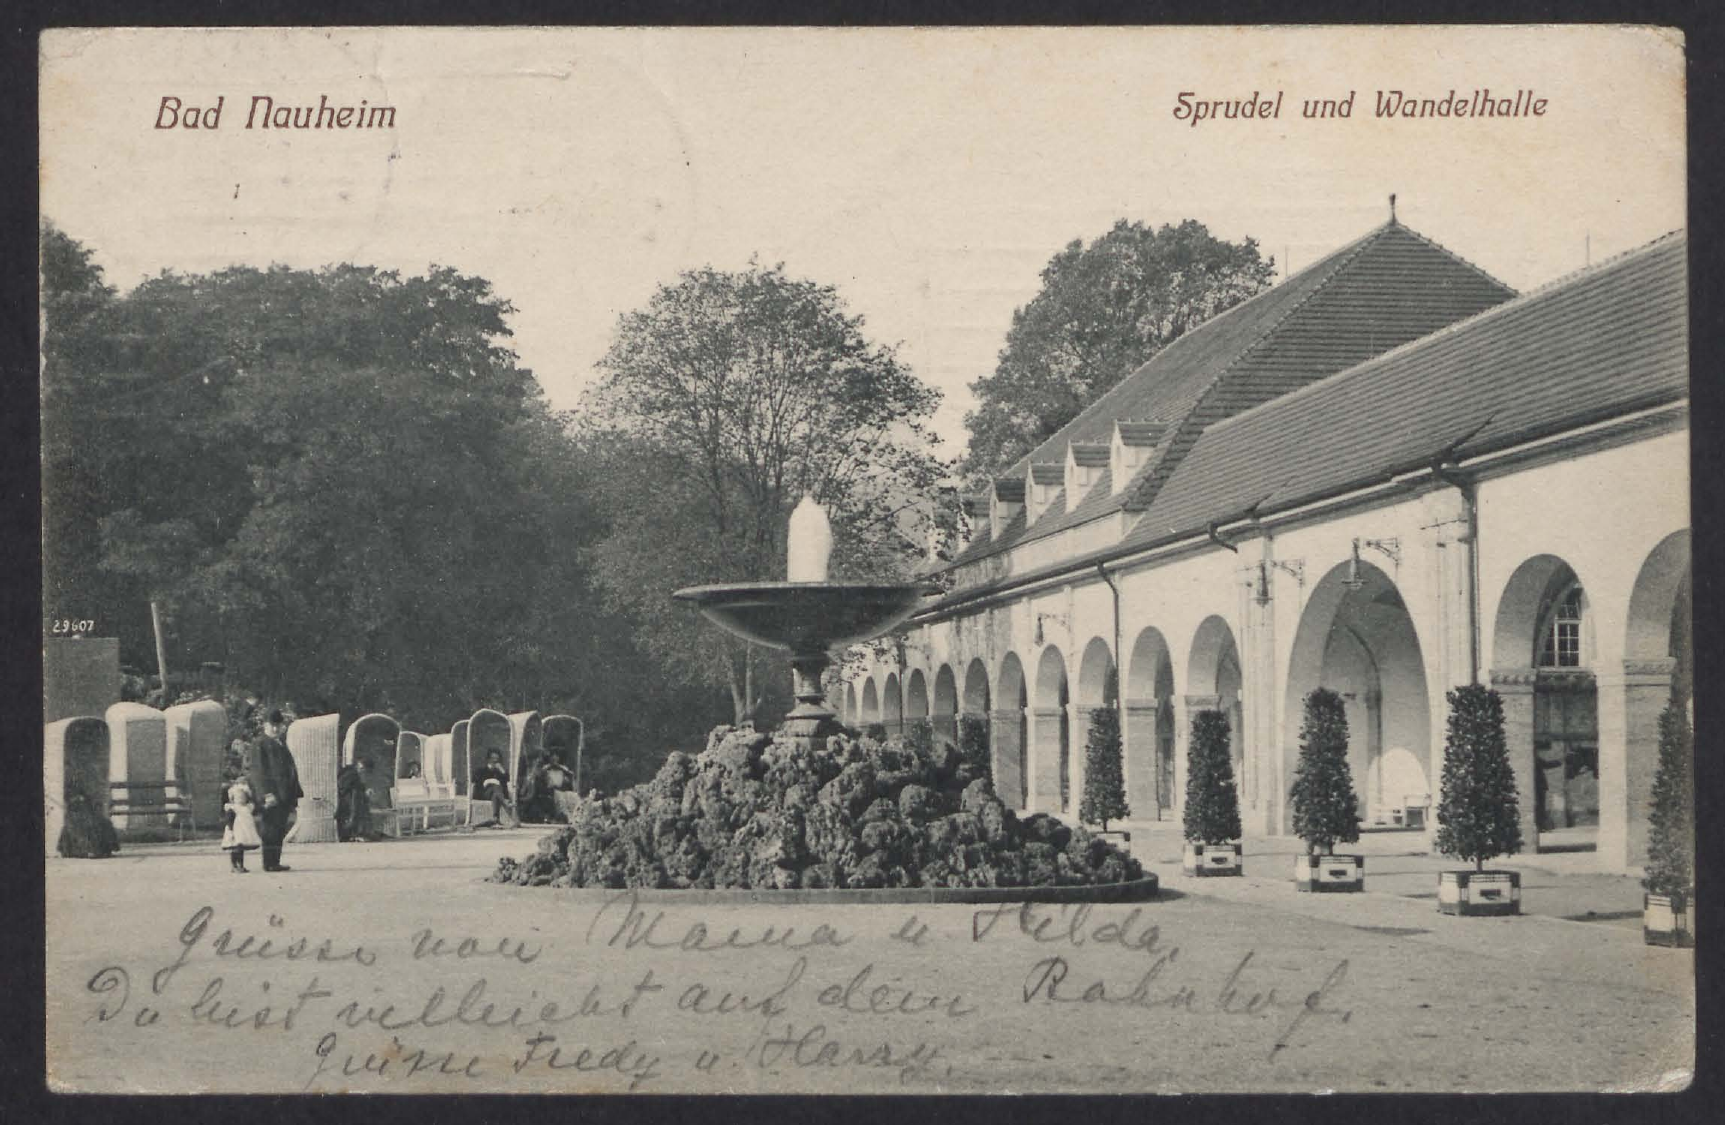 Bad Nauheim
Sprudel und Wandelhalle
29607
Grüsse von Mama u Hilda,
Du bist villeicht auf dem Bahnhof.
Grüsse Fredy u. Harry.